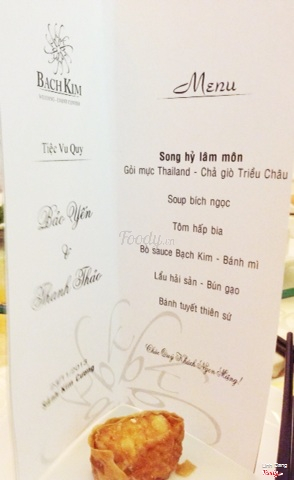 BẠCH KIM
Tiệc Vu Quy
Bảo Yến
&
Thanh Thảo
Sảnh Kim Cương
Menu
Song hỷ lâm môn
Gỏi mực Thailand - Chả giò Triều Châu
Soup bích ngọc
Tôm hấp bia
Bò sauce Bạch Kim - Bánh mì
Lẩu hải sản - Bún gạo
Bánh tuyết thiên sứ
Chúc Quý Khách Ngon Miệng!
Foody.vn